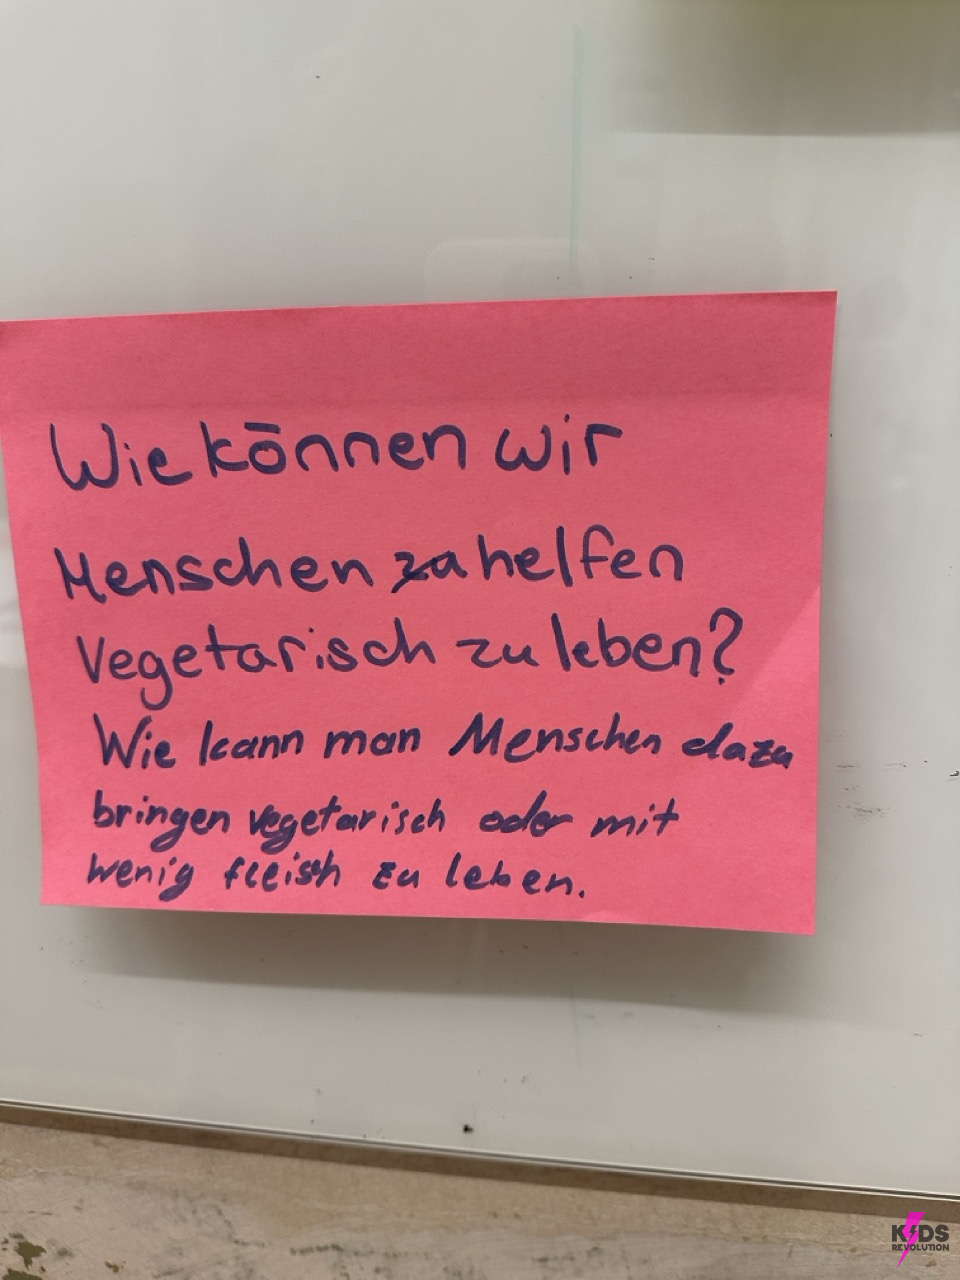 Wie können wir
Menschen za helfen
vegetarisch zu leben?
Wie kann man Menschen dazu
bringen vegetarisch oder mit
wenig fleisch zu leben.
KIDS
REVOLUTION